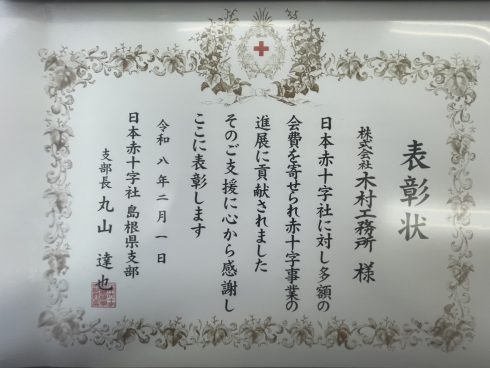 表彰状
株式会社 木村工務所 様
日本赤十字社に対し多額の
会費を寄せられ赤十字事業の
進展に貢献されました
そのご支援に心から感謝し
ここに表彰します
令和八年二月一日
日本赤十字社 島根県支部
支部長 丸山 達也